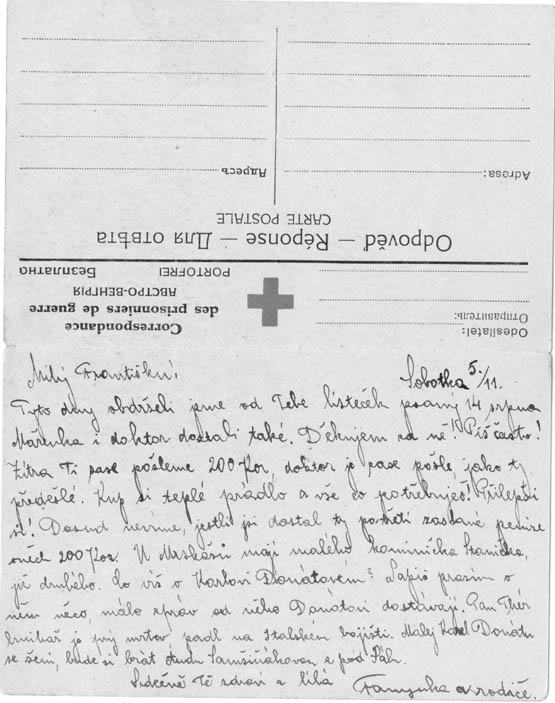 Odesílatel:
Отправитель:
Correspondance
des prisonniers de guerre
АВСТРО-ВЕНГРІЯ
PORTOFREI Безплатно
Odpověď — Réponse — Для отвѣта
CARTE POSTALE
Adresa: Адресъ
Milý Františku! Sobotka 5./11.
Tyto dny obdrželi jsme od Tebe lísteček psaný 14 srpna
Mařenka i doktor dostali také. Děkujem za ně! Piš často!
Zítra Ti zase pošleme 200 Kor, doktor je zase pošle jako ty
předešlé. Kup si teplé prádlo a vše co potřebuješ! Přilepši
si! Dosud nevíme, jestli jsi dostal ty potřetí zaslané peníze
oněch 200 Kor. U malého kominíčka Staníčka,
již druhého. Co víš o Karlovi Donátovém? Napiš prosím o
něm něco, málo zpráv od něho Donátovi dostávají. Pan
je prý mrtev padl na Italském bojišti. Malej Karel Donátů
se žení, bude si brát Samšiňákovou z pod
Srdečně Tě zdraví a líbá a rodiče.